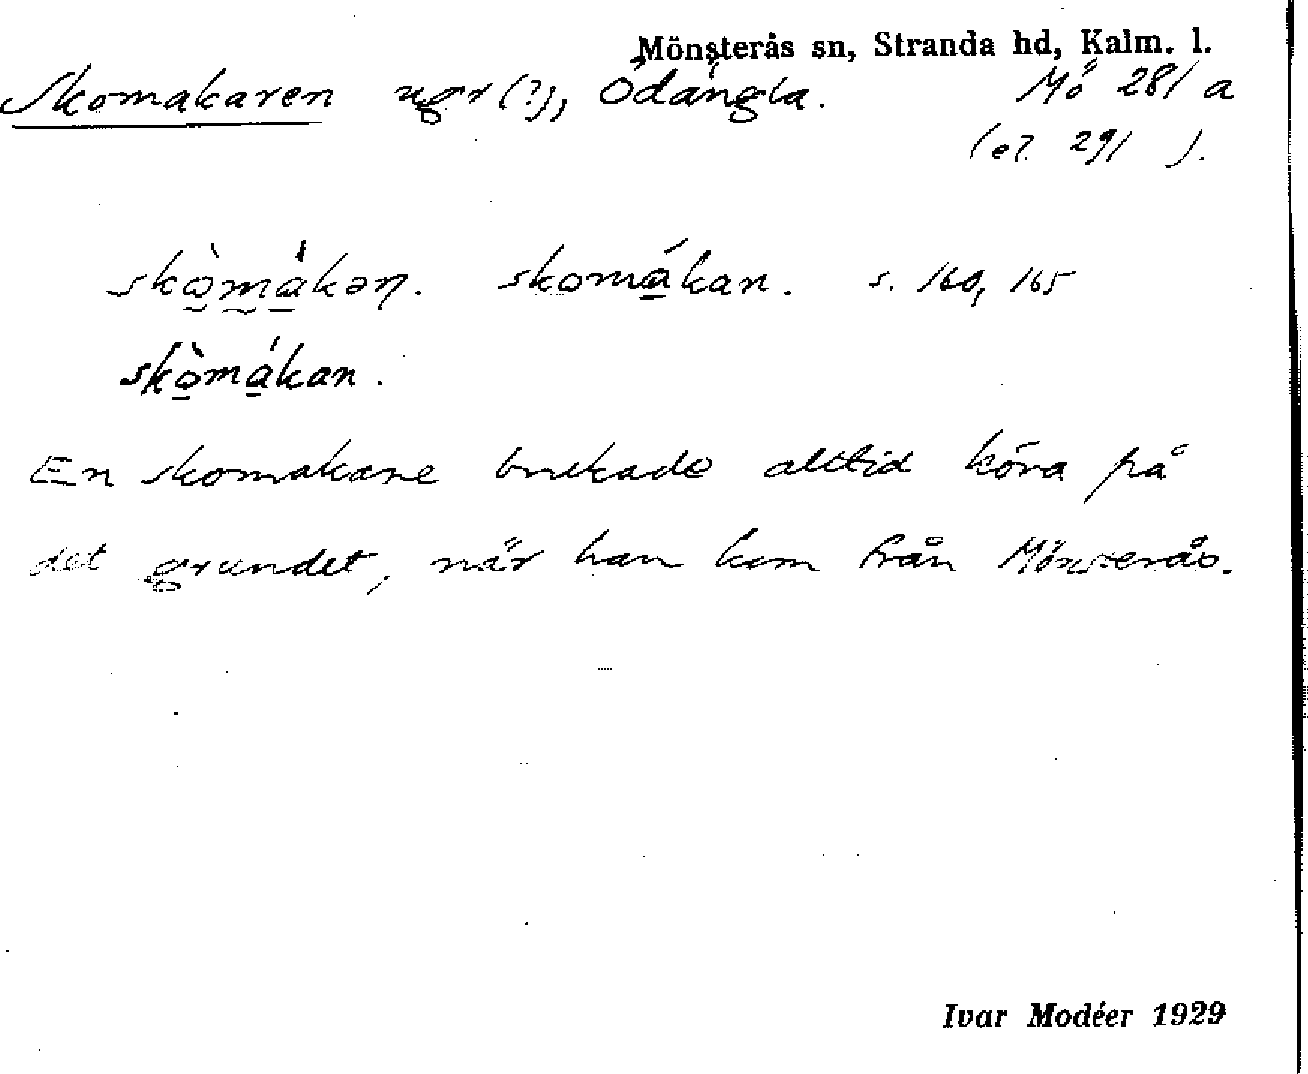 Mönsterås sn, Stranda hd, Kalm. l.
Skomakaren ugr (?), Ödängla. Mö 281 a
(el. 291 ).
skò̱má̱kəṇ. skomá̱kan. s. 160, 165
skò̱má̱kan.
En skomakare brukade alltid köra på
det grundet, när han kom från Mönsterås.
Ivar Modéer 1929